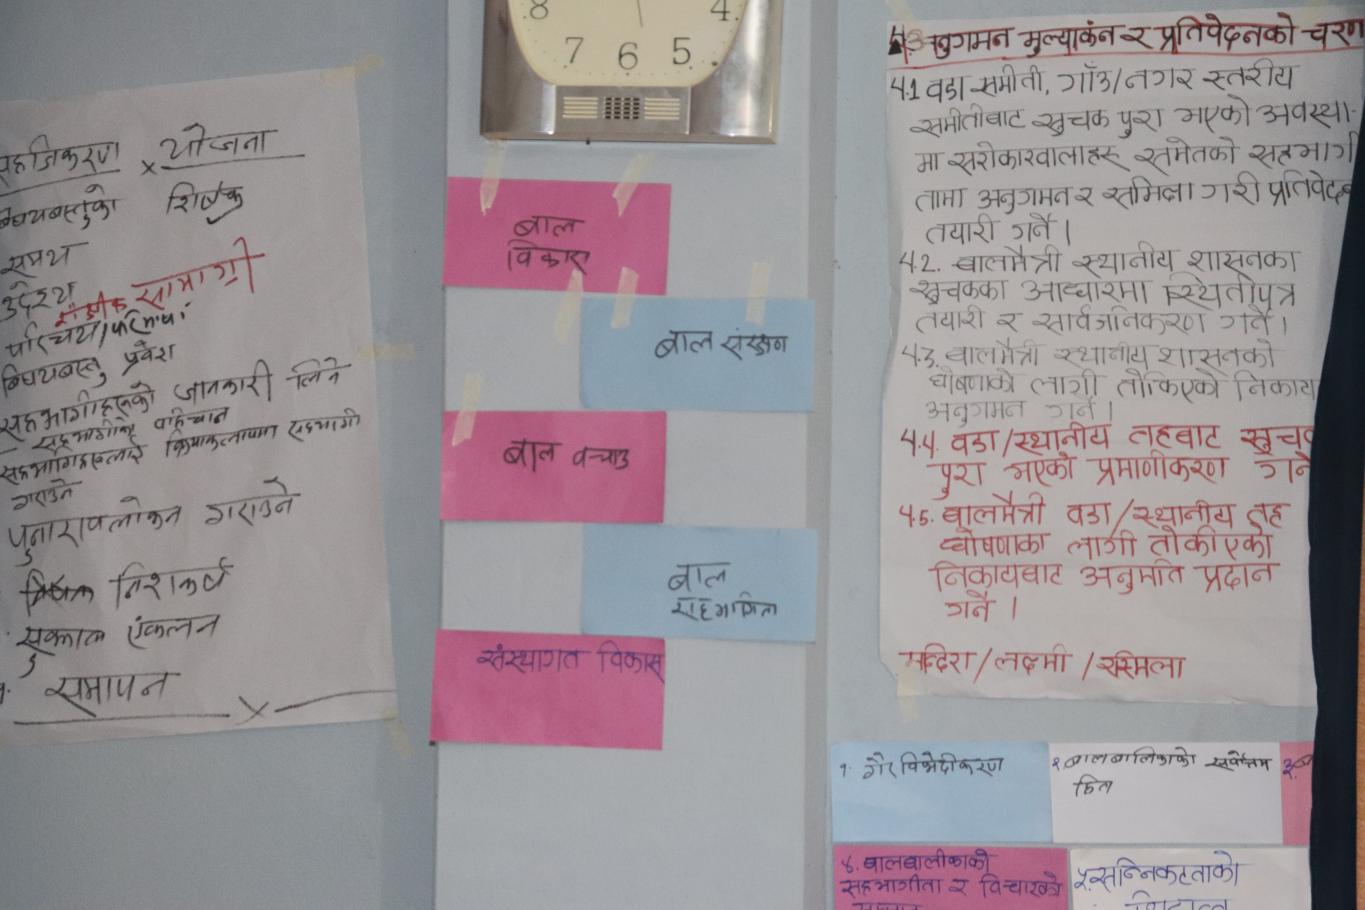 सहजिकरण × योजना
बिषयबस्तुको शिर्षक
समय
उदेश्य
सामाग्री
परिचय/
बिषयबस्तु प्रवेश
सहभागीहरुको जानकारी लिने
गराउने
पुनरावलोकन गराउने
निशकर्ष
समापन
8 7 6 5 4
बाल
विकास
बाल संरक्षण
बाल बचाउ
बाल
सहभागिता
संस्थागत विकास
अनुगमन मुल्याकंन र प्रतिवेदनको चरण
4.1 वडा समीती, गाँउ/नगर स्तरीय
समीतीबाट सुचक पुरा भएको अवस्था-
मा सरोकारवालाहरु समेतको सहभागी
तामा अनुगमन र समिक्षा गरी प्रतिवेदन
तयारी गर्ने।
4.2. बालमैत्री स्थानीय शासनका
सुचकका आधारमा स्थितीपत्र
तयारी र सार्वजनिकरण गर्ने।
4.3. बालमैत्री स्थानीय शासनको
घोषणाको लागी तोकिएको निकाय
अनुगमन गर्ने।
4.4. वडा/स्थानीय तहबाट सुचक
पुरा भएको प्रमाणीकरण गर्ने
4.5. बालमैत्री वडा/स्थानीय तह
घोषणाका लागी तोकीएको
निकायबाट अनुमति प्रदान
गर्ने ।
मन्दिरा/लक्ष्मी/रस्मिला
१. गैर विभेदीकरण
२. बालबालिकाको सर्वोत्तम
हित
३.
४. बालबालीकाको
सहभागीता र विचारको
५. सन्निकटताको